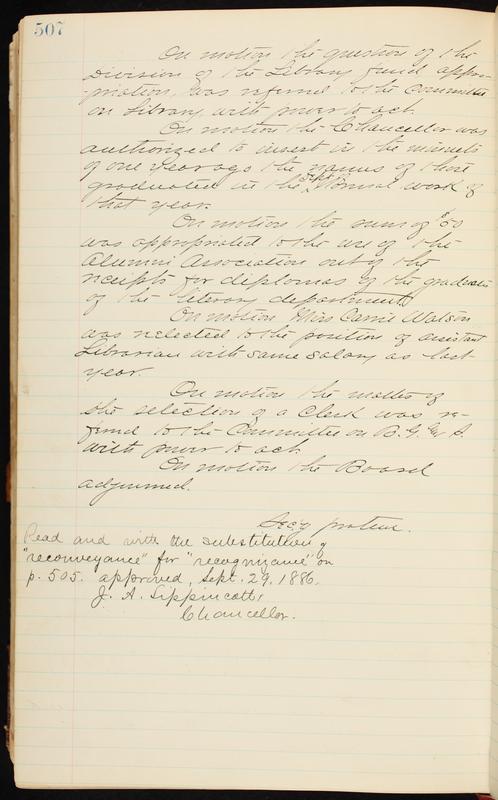 507
On motion the question of the
Division of the Library fund appro-
-priation, was referred to the Committee
on Library, with power to act.
On motion the Chancellor was
authorized to insert in the minutes
of one year ago the names of those
graduated in the Dept Normal work of
that year.
On motion the sum of $50
was appropriated to the use of the
Alumni Association out of the
receipts for diplomas of the graduates
of the literary department
On motion Miss Carrie Watson
was reelected to the position of assistant
Librarian with same salary as last
year.
On motion the matter of
the selection of a Clerk was re-
ferred to the Committee on B. G. &
with power to act.
On motion the Board
adjourned.
Secy protem.
Read and with the substitution of
"reconveyance" for "recognizance" on
p. 505. approved, Sept. 29. 1886.
J. A. Lippincott,
Chancellor.